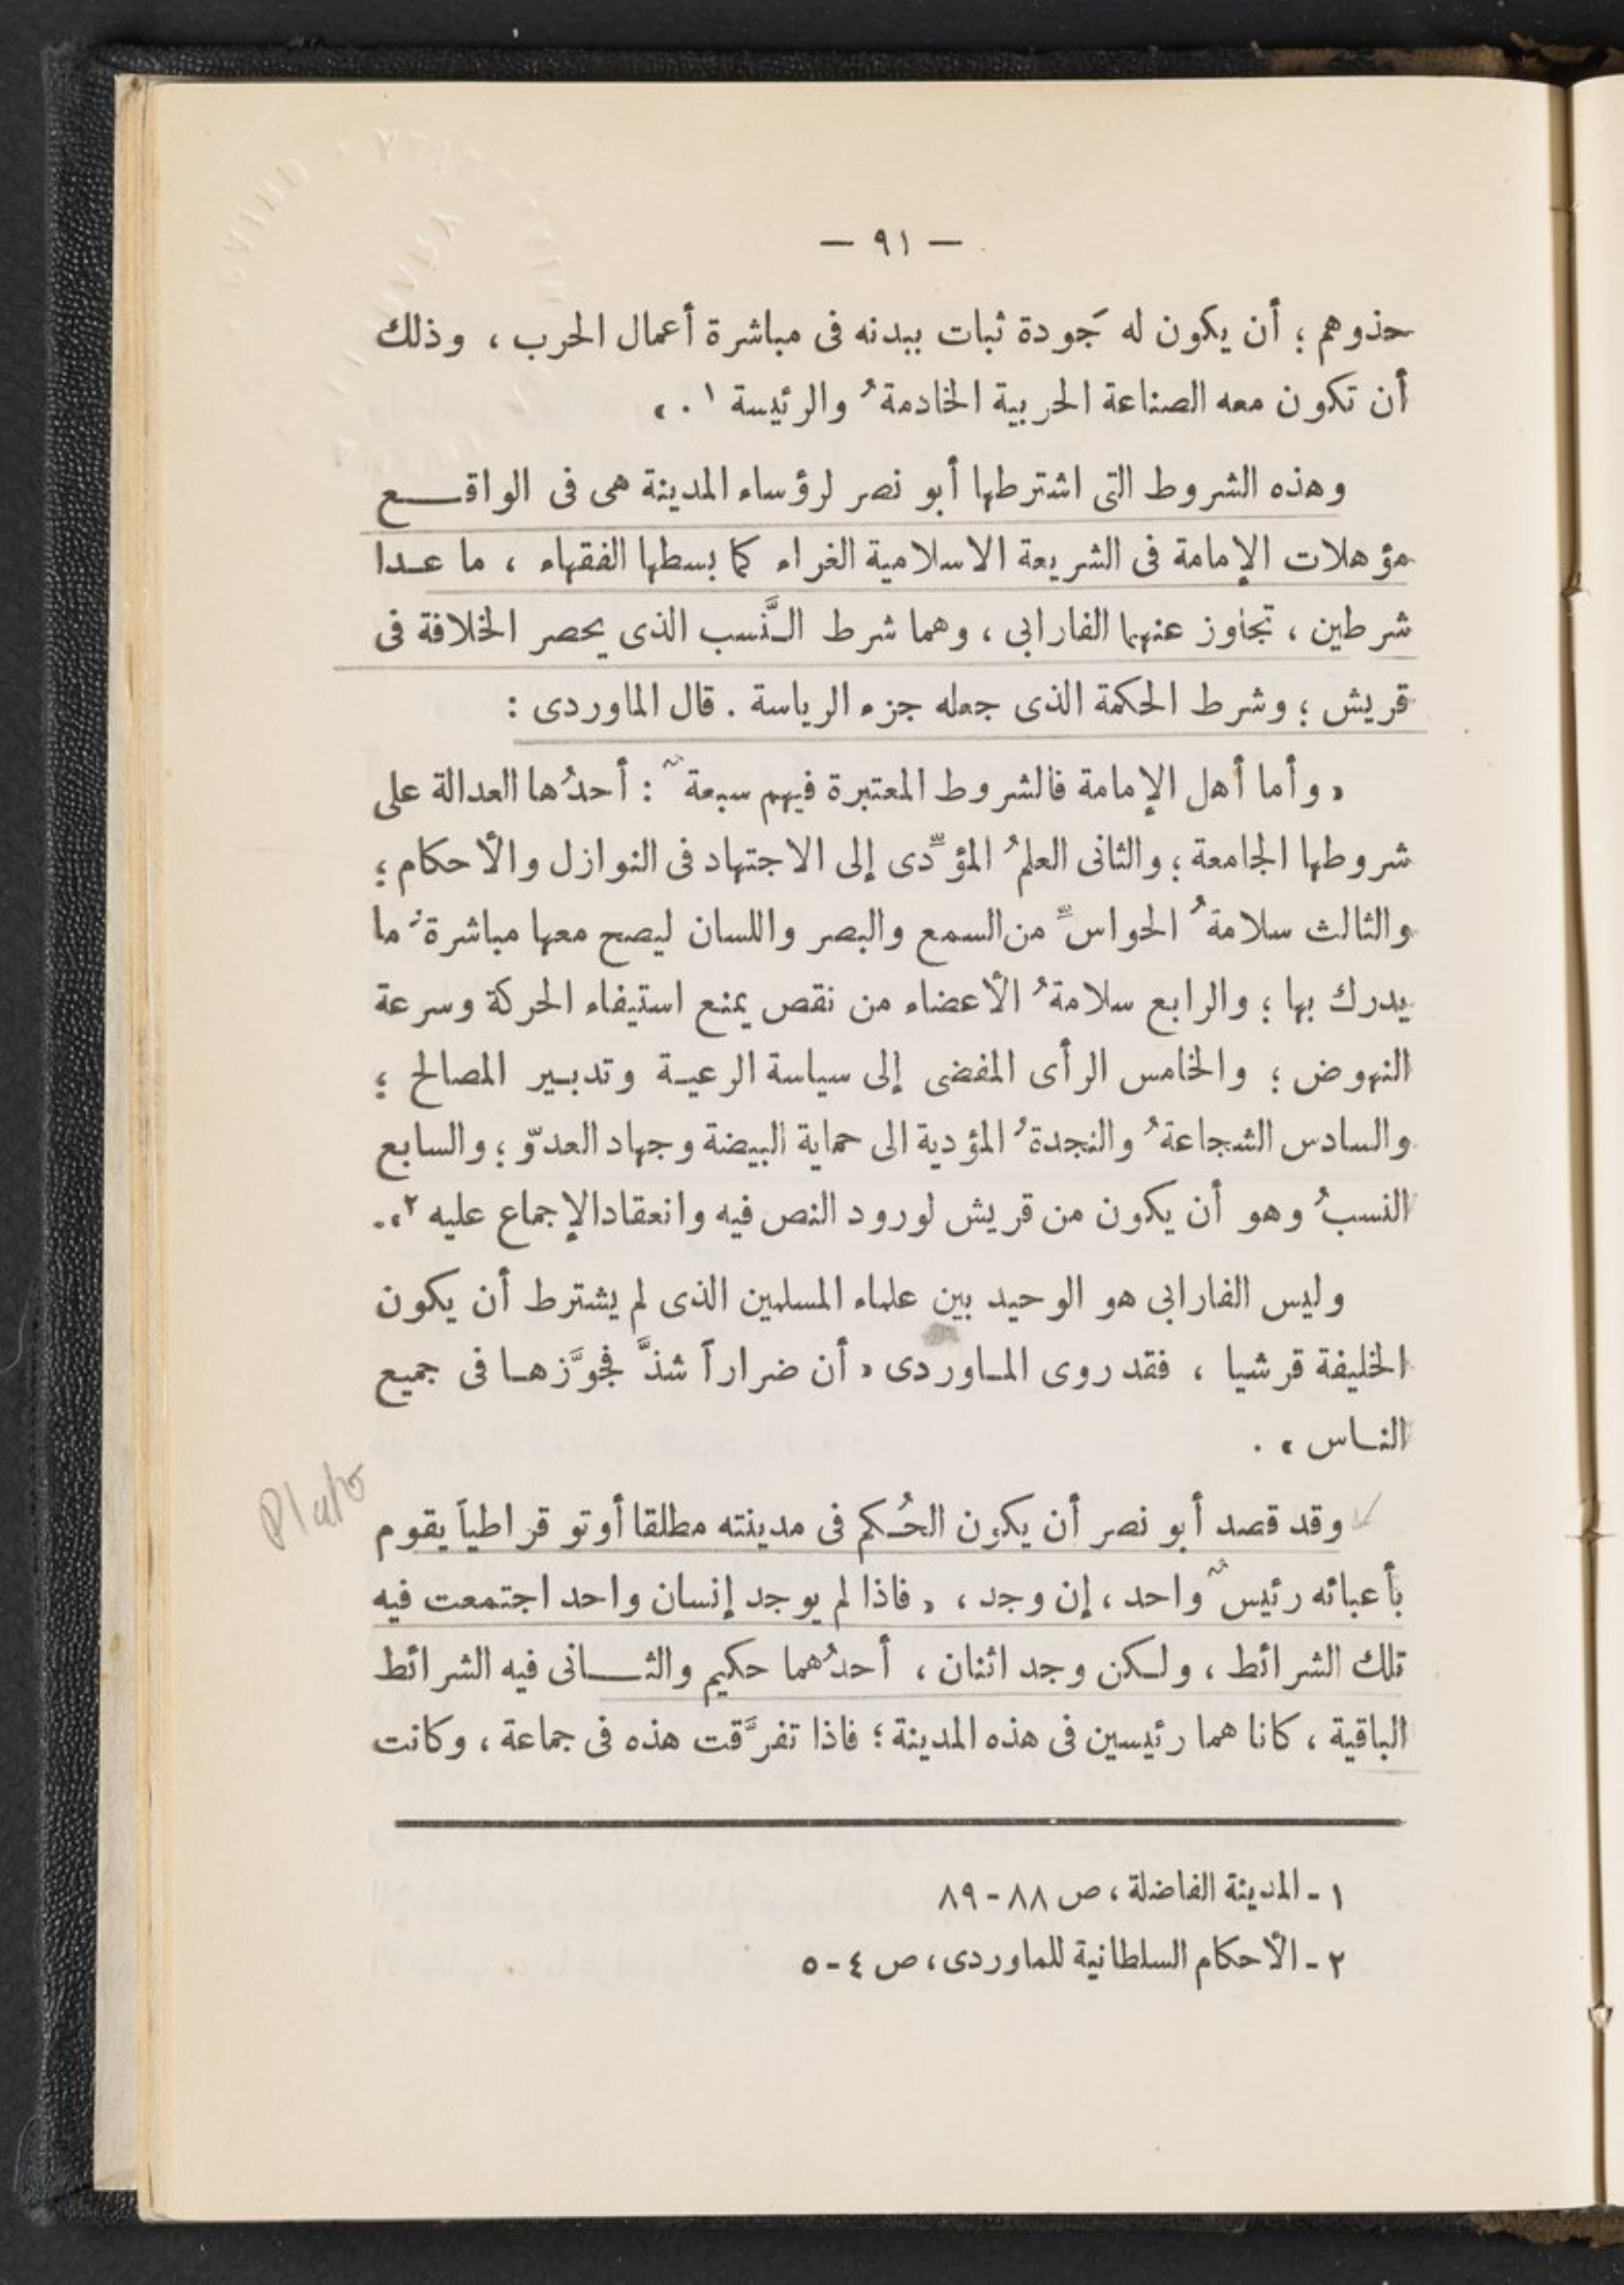 — ٩١ —
حذوهم ؛ أن يكون له جَودة ثبات ببدنه فى مباشرة أعمال الحرب ، وذلك
أن تكون معه الصناعة الحربية الخادمةُ والرئيسة ١ . »
وهذه الشروط التى اشترطها أبو نصر لرؤساء المدينة هى فى الواقـــع
مؤهلات الإمامة فى الشريعة الاسلامية الغراء كما بسطها الفقهاء ، ما عـدا
شرطين ، تجاوز عنهما الفارابى ، وهما شرط النَّسب الذى يحصر الخلافة فى
قريش ؛ وشرط الحكمة الذى جعله جزء الرياسة . قال الماوردى :
« وأما أهل الإمامة فالشروط المعتبرة فيهم سبعةٌ : أحدُها العدالة على
شروطها الجامعة ؛ والثانى العلمُ المؤدِّى إلى الاجتهاد فى النوازل والأحكام ؛
والثالث سلامةُ الحواسِّ من السمع والبصر واللسان ليصح معها مباشرةُ ما
يدرك بها ؛ والرابع سلامةُ الأعضاء من نقص يمنع استيفاء الحركة وسرعة
النهوض ؛ والخامس الرأى المفضى إلى سياسة الرعيـة وتدبـير المصالح ؛
والسادس الشجاعةُ والنجدةُ المؤدية الى حماية البيضة وجهاد العدوّ ؛ والسابع
النسبُ وهو أن يكون من قريش لورود النص فيه وانعقاد الإجماع عليه ٢ » .
وليس الفارابى هو الوحيد بين علماء المسلمين الذى لم يشترط أن يكون
الخليفة قرشيا ، فقد روى المـاوردى « أن ضراراً شذَّ فجوَّزهـا فى جميع
النـاس » .
وقد قصد أبو نصر أن يكون الحُـكم فى مدينته مطلقا أوتوقراطياً يقوم
Plato
بأعبائه رئيسٌ واحد ، إن وجد ، « فاذا لم يوجد إنسان واحد اجتمعت فيه
تلك الشرائط ، ولـكن وجد اثنان ، أحدُهما حكيم والثـــانى فيه الشرائط
الباقية ، كانا هما رئيسين فى هذه المدينة ؛ فاذا تفرَّقت هذه فى جماعة ، وكانت
١ - المدينة الفاضلة ، ص ٨٨ - ٨٩
٢ - الأحكام السلطانية للماوردى ، ص ٤ - ٥